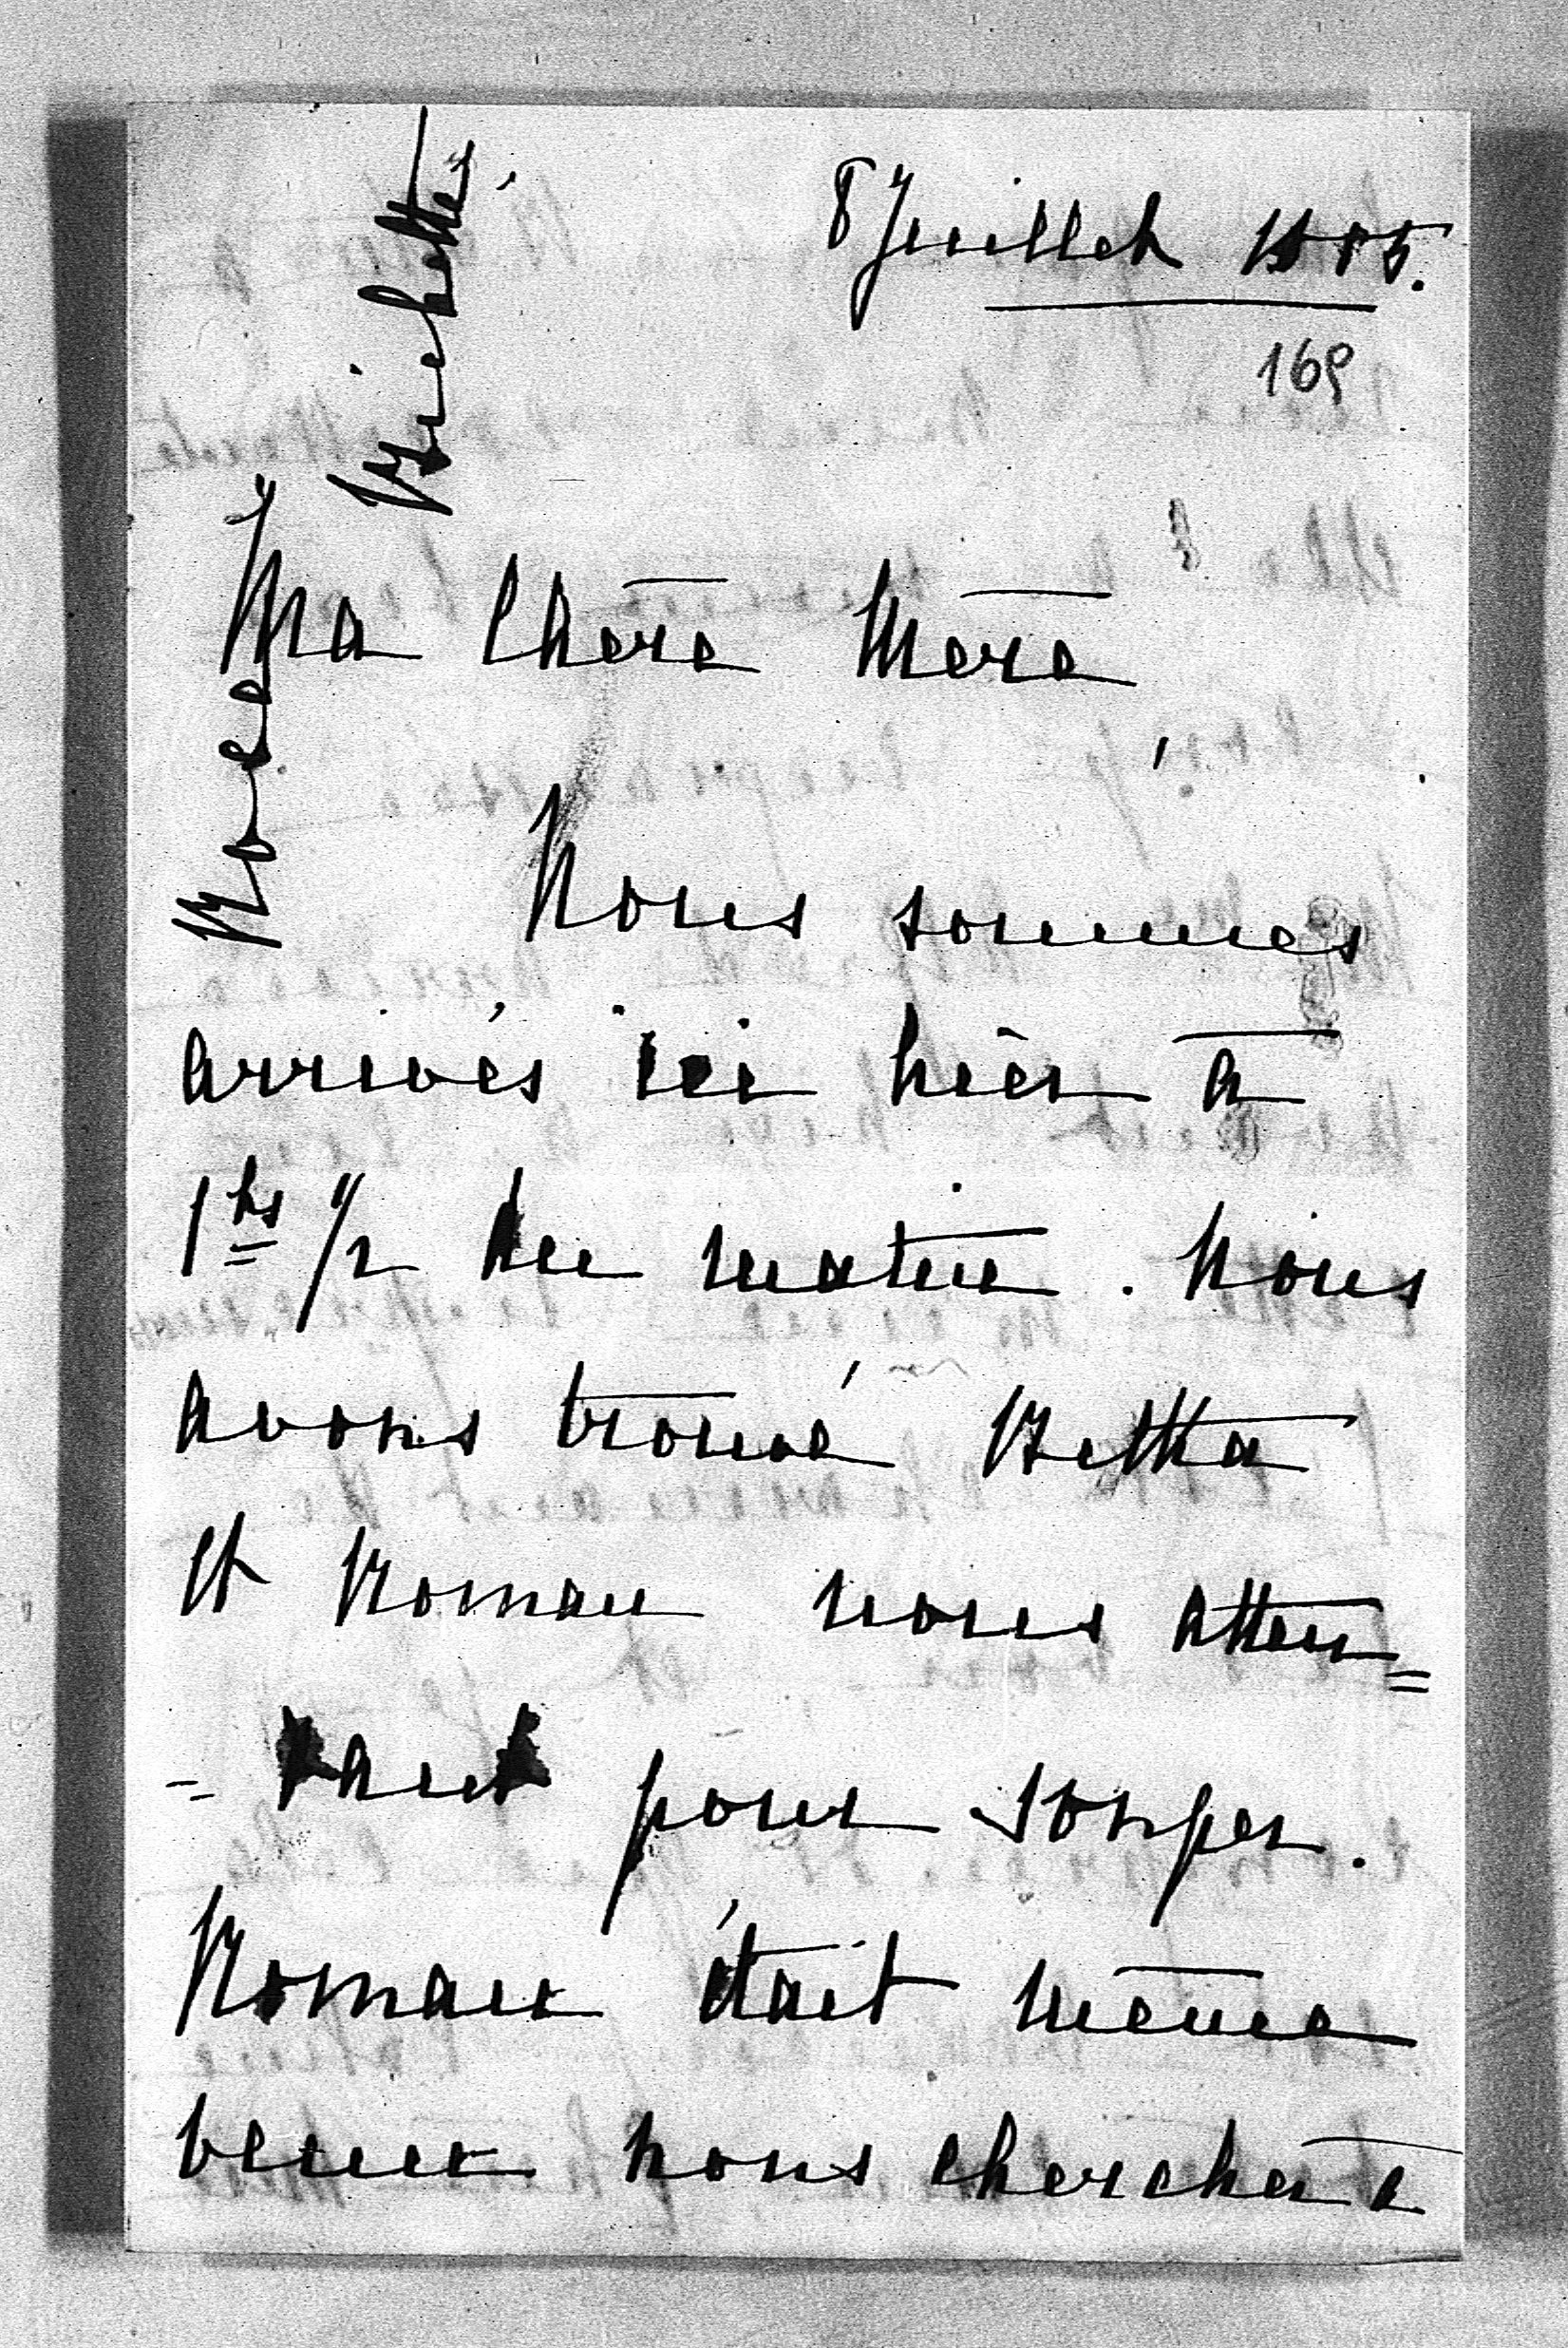 8 Juillet 1885.
169
Ma chère Mère
Nous sommes
arrivés ici hièr à
1 hs 1/2 du matin. Nous
avons trouvé Betka
et Roman nous atten=
=dant pour souper.
Roman était même
venu nous chercher à